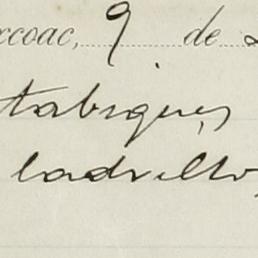 ccoac, 9 de
tabiques
ladrillo,